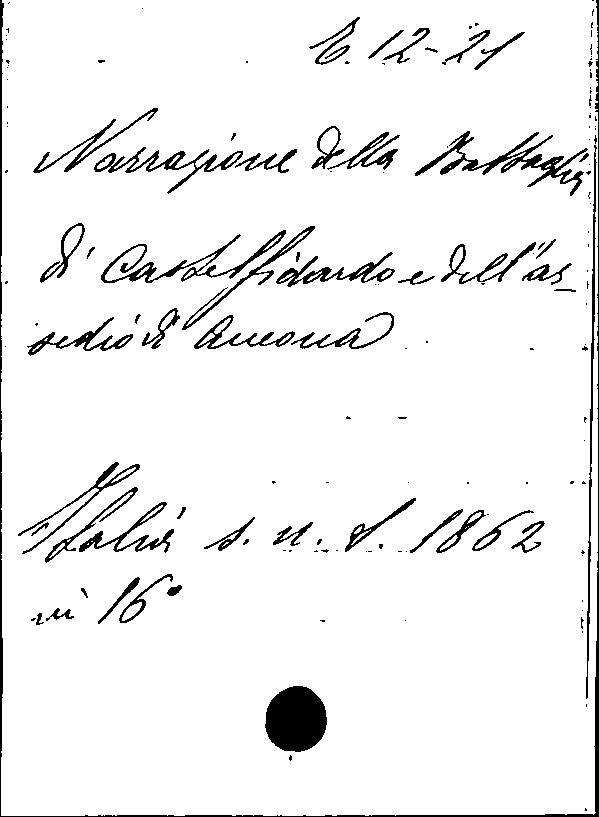 E. 12-21
Narrazione della Battaglia
di Castelfidardo e dell'as-
sedio di Ancona
Italia s. n. t. 1862
in 16°